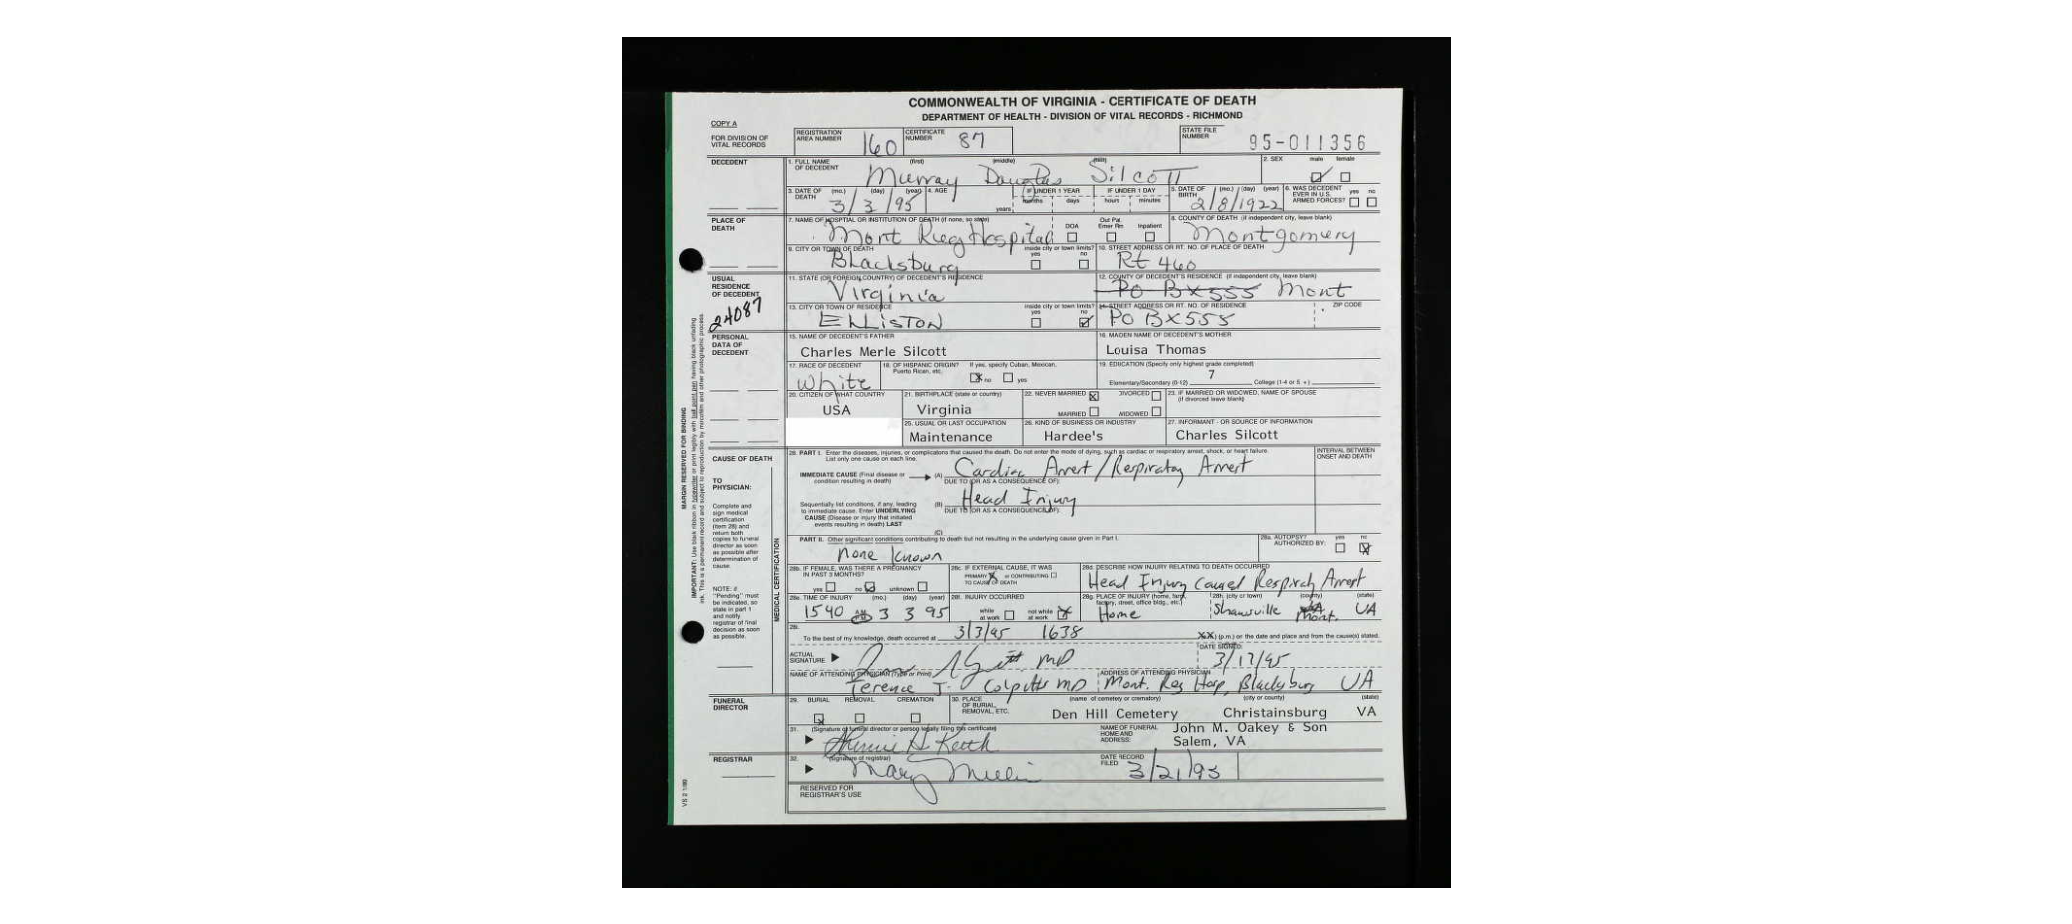 COMMONWEALTH OF VIRGINIA - CERTIFICATE OF DEATH
DEPARTMENT OF HEALTH - DIVISION OF VITAL RECORDS - RICHMOND
COPY A
FOR DIVISION OF VITAL RECORDS
REGISTRATION AREA NUMBER 160
CERTIFICATE NUMBER 87
STATE FILE NUMBER 95-011356
DECEDENT
1. FULL NAME OF DECEDENT (first) (middle)
Murray Douglas Silcott
2. SEX male female
3. DATE OF DEATH (mo.) (day) (year) 3/3/95
4. AGE years
IF UNDER 1 YEAR months days
IF UNDER 1 DAY hours minutes
5. DATE OF BIRTH (mo.) (day) (year) 2/8/1922
6. WAS DECEDENT EVER IN U.S. ARMED FORCES? yes no
PLACE OF DEATH
7. NAME OF HOSPITAL OR INSTITUTION OF DEATH (if none, so state)
Mont Reg Hospital
DOA Out Pat. Emer Rm Inpatient
8. COUNTY OF DEATH (if independent city, leave blank)
Montgomery
9. CITY OR TOWN OF DEATH inside city or town limits? yes no
Blacksburg
10. STREET ADDRESS OR RT. NO. OF PLACE OF DEATH
Rt 460
USUAL RESIDENCE OF DECEDENT
24087
11. STATE (OR FOREIGN COUNTRY) OF DECEDENT'S RESIDENCE
Virginia
12. COUNTY OF DECEDENT'S RESIDENCE (if independent city, leave blank)
PO Bx 555 Mont
13. CITY OR TOWN OF RESIDENCE inside city or town limits? yes no
ELLISTON
14. STREET ADDRESS OR RT. NO. OF RESIDENCE ZIP CODE
PO Bx 555
PERSONAL DATA OF DECEDENT
15. NAME OF DECEDENT'S FATHER
Charles Merle Silcott
16. MAIDEN NAME OF DECEDENT'S MOTHER
Louisa Thomas
17. RACE OF DECEDENT
White
18. OF HISPANIC ORIGIN? If yes, specify Cuban, Mexican, Puerto Rican, etc.
no yes
19. EDUCATION (Specify only highest grade completed)
7
Elementary/Secondary (0-12) College (1-4 or 5 +)
20. CITIZEN OF WHAT COUNTRY
USA
21. BIRTHPLACE (state or country)
Virginia
22. NEVER MARRIED DIVORCED
MARRIED WIDOWED
23. IF MARRIED OR WIDOWED, NAME OF SPOUSE (if divorced leave blank)
25. USUAL OR LAST OCCUPATION
Maintenance
26. KIND OF BUSINESS OR INDUSTRY
Hardee's
27. INFORMANT - OR SOURCE OF INFORMATION
Charles Silcott
CAUSE OF DEATH
TO PHYSICIAN:
Complete and sign medical certification (item 28) and return both copies to funeral director as soon as possible after determination of cause.
NOTE: if "Pending" must be indicated, so state in part 1 and notify registrar of final decision as soon as possible.
MEDICAL CERTIFICATION
MARGIN RESERVED FOR BINDING
28. PART I. Enter the diseases, injuries, or complications that caused the death. Do not enter the mode of dying, such as cardiac or respiratory arrest, shock, or heart failure.
List only one cause on each line.
INTERVAL BETWEEN ONSET AND DEATH
IMMEDIATE CAUSE (Final disease or condition resulting in death) (A) Cardiac Arrest/Respiratory Arrest
DUE TO (OR AS A CONSEQUENCE OF):
Sequentially list conditions, if any, leading to immediate cause. Enter UNDERLYING CAUSE (Disease or injury that initiated events resulting in death) LAST
(B) Head Injury
DUE TO (OR AS A CONSEQUENCE OF):
(C)
PART II. Other significant conditions contributing to death but not resulting in the underlying cause given in Part I.
None known
28a. AUTOPSY? AUTHORIZED BY: yes no
28b. IF FEMALE, WAS THERE A PREGNANCY IN PAST 3 MONTHS?
yes no unknown
28c. IF EXTERNAL CAUSE, IT WAS
PRIMARY or CONTRIBUTING TO CAUSE OF DEATH
28d. DESCRIBE HOW INJURY RELATING TO DEATH OCCURRED
Head Injury Caused Respiratory Arrest
28e. TIME OF INJURY (mo.) (day) (year)
1540 3 3 95
28f. INJURY OCCURRED while at work not while at work
28g. PLACE OF INJURY (home, farm, factory, street, office bldg., etc.)
Home
28h. (city or town) (county) (state)
Shawsville Mont. VA
To the best of my knowledge, death occurred at 3/3/95 1638 (p.m.) on the date and place and from the cause(s) stated.
ACTUAL SIGNATURE MD
DATE SIGNED: 3/17/95
NAME OF ATTENDING PHYSICIAN (Type or Print)
Terence MD
ADDRESS OF ATTENDING PHYSICIAN
Mont. Reg Hosp, Blacksburg VA
FUNERAL DIRECTOR
29. BURIAL REMOVAL CREMATION
30. PLACE OF BURIAL, REMOVAL, ETC. (name of cemetery or crematory) (city or county) (state)
Den Hill Cemetery Christainsburg VA
31. (Signature of funeral director or person legally filing this certificate)
Keith
NAME OF FUNERAL HOME AND ADDRESS:
John M. Oakey & Son
Salem, VA
REGISTRAR
32. (Signature of registrar)
Mary
DATE RECORD FILED 3/21/95
RESERVED FOR REGISTRAR'S USE
VS 2 1/89